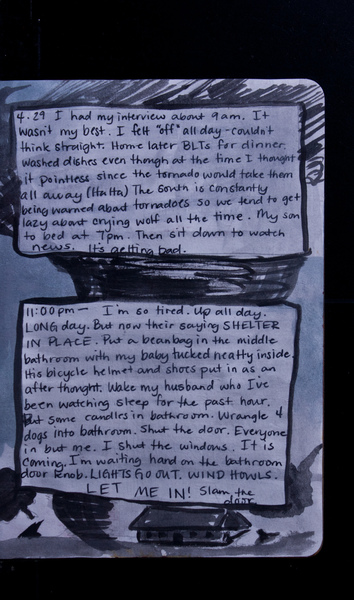 4.29 I had my interview about 9am. It
wasn't my best. I felt "off" all day - couldn't
think straight. Home later BLTs for dinner.
washed dishes even though at the time I thought
it pointless since the tornado would take them
all away (HaHa) The South is constantly
being warned about tornadoes so we tend to get
lazy about crying wolf all the time. My son
to bed at 7pm. Then sit down to watch
news. It's getting bad.
11:00pm — I'm so tired. Up all day.
LONG day. But now their saying SHELTER
IN PLACE. Put a beanbag in the middle
bathroom with my baby tucked neatly inside.
His bicycle helmet and shoes put in as an
after thought. Wake my husband who I've
been watching sleep for the past hour.
Put some candles in bathroom. Wrangle 4
dogs into bathroom. Shut the door. Everyone
in but me. I shut the windows. It is
coming. I'm waiting hand on the bathroom
door knob. LIGHTS GO OUT. WIND HOWLS.
LET ME IN! Slam the
door.